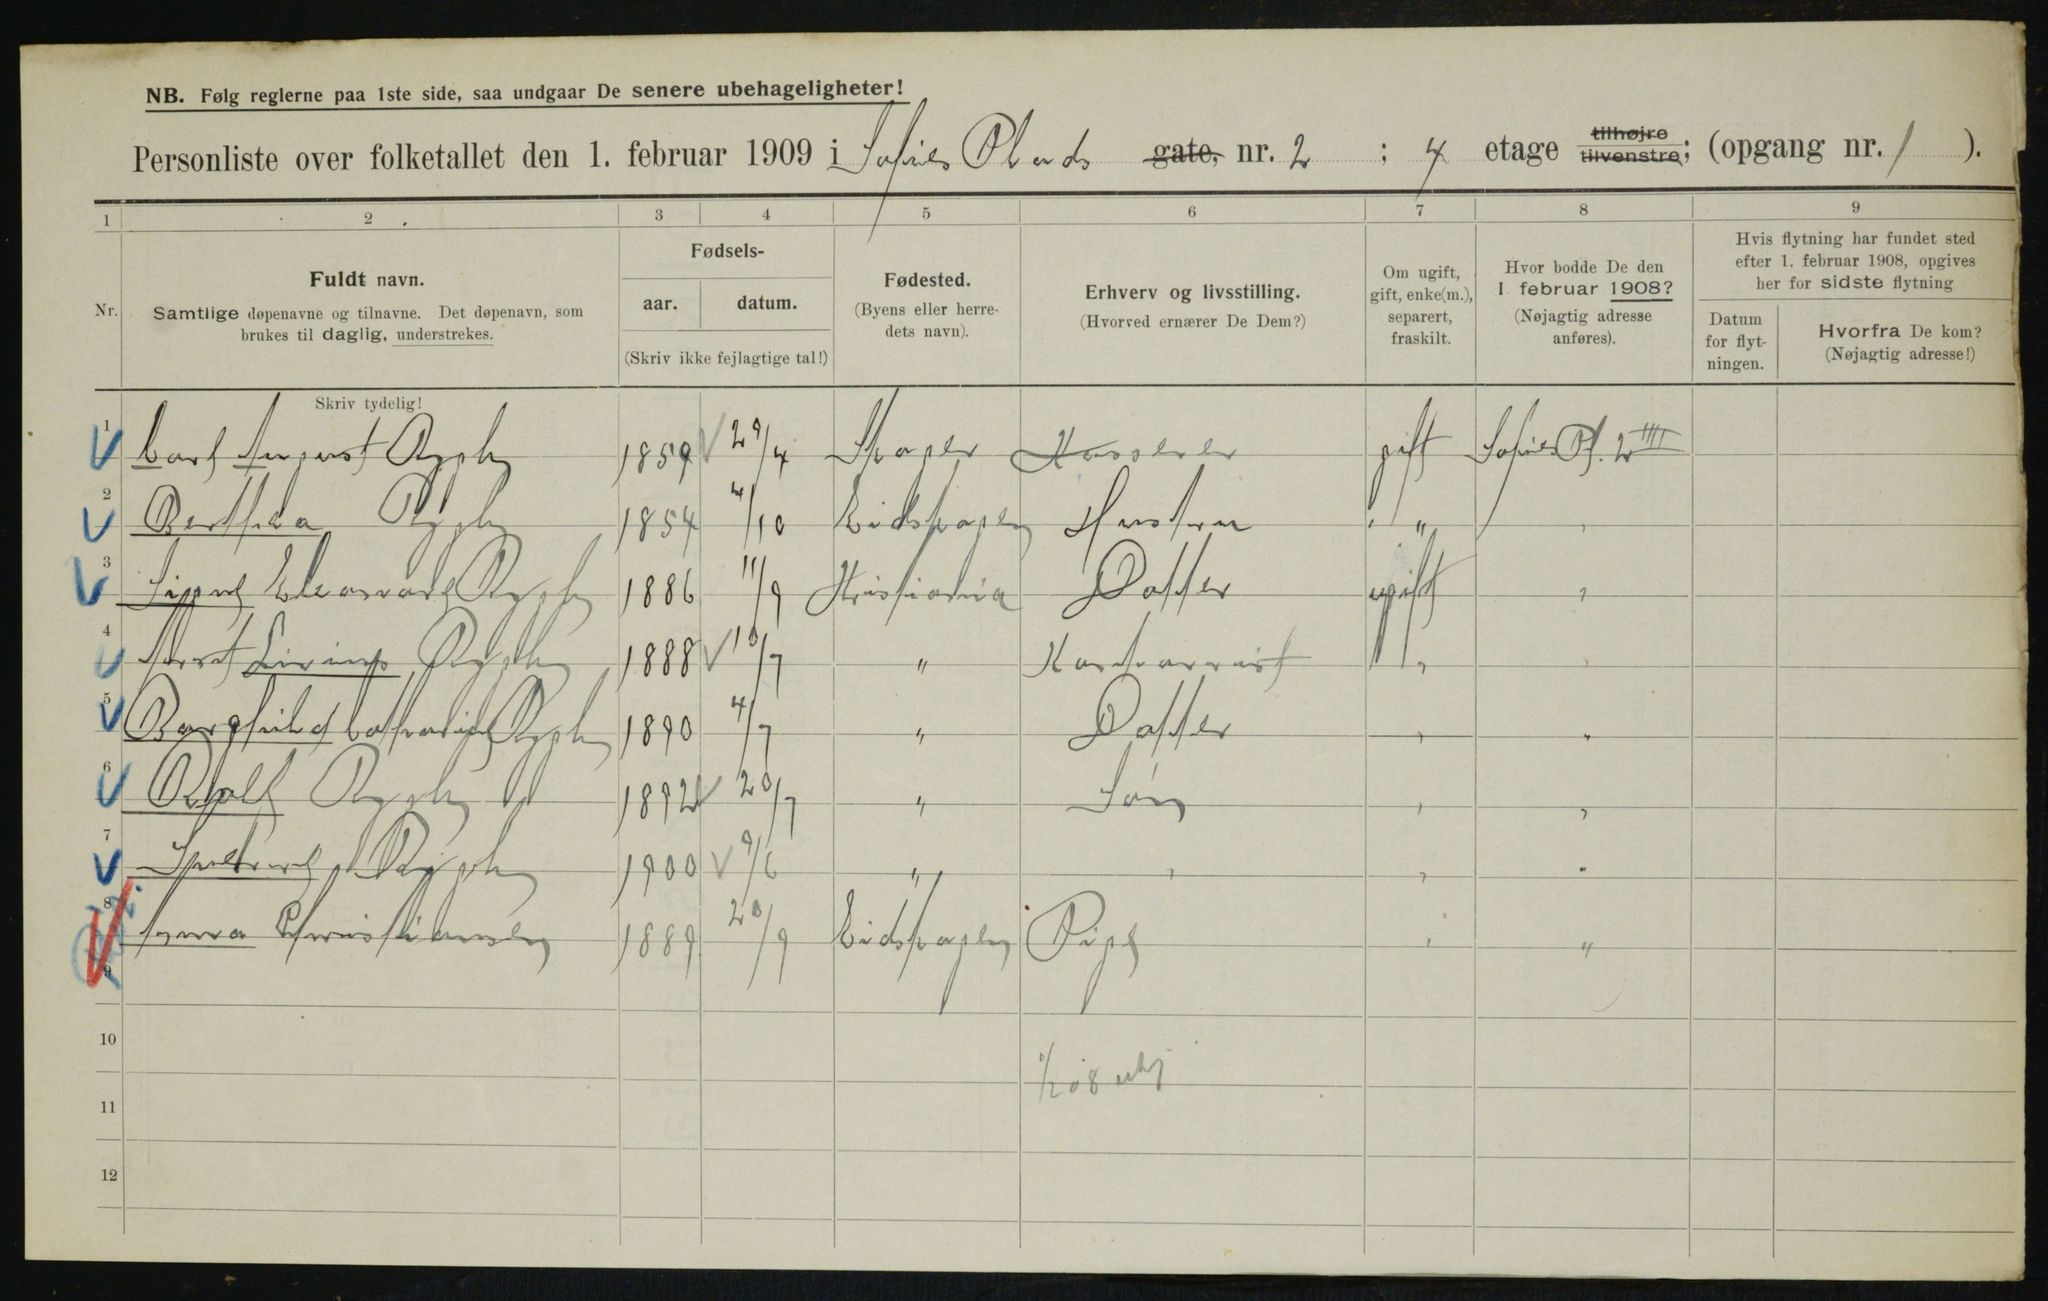 NB. Følg reglerne paa 1ste side, saa undgaar De senere ubehageligheter!
Personliste over folketallet den 1. februar 1909 i Sofies Plads gate, nr. 2 ; 4 etage tilhøjre tilvenstre; (opgang nr. 1 ).
1 2 3 4 5 6 7 8 9
Nr.
Fuldt navn.
Samtlige døpenavne og tilnavne. Det døpenavn, som
brukes til daglig, understrekes.
Fødsels-
aar. datum.
(Skriv ikke fejlagtige tal!)
Fødested.
(Byens eller herre-
dets navn).
Erhverv og livsstilling.
(Hvorved ernærer De Dem?)
Om ugift,
gift, enke(m.),
separert,
fraskilt.
Hvor bodde De den
1. februar 1908?
(Nøjagtig adresse
anføres).
Hvis flytning har fundet sted
efter 1. februar 1908, opgives
her for sidste flytning
Datum
for flyt-
ningen.
Hvorfra De kom?
(Nøjagtig adresse!)
Skriv tydelig!
1 Carl August 1859 29/4 Kasserer gift Sofies Pl. 2 IIII
2 Berthea 1854 4/10 Eidskogen Hustru " "
3 1886 11/9 Kristiania Datter ugift "
4 1888 18/7 " Kontorrist " "
5 Borghild 1890 4/7 " Datter " "
6 Rolf 1892 20/7 " Søn " "
7 1900 9/6 " " " "
8 Christiansen 1889 20/9 Eidskogen Pige " "
9
10
1/2 08
11
12